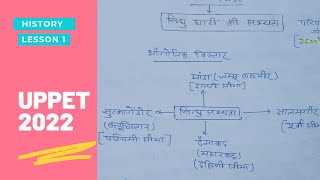 HISTORY
LESSON 1
UPPET
2022
सिंधु घाटी की सभ्यता
भौगोलिक विस्तार
मांडा (जम्मू काश्मीर)
[उत्तरी सीमा]
सुत्कागेंडोर
(बलूचिस्तान)
[पश्चिमी सीमा]
सिन्धु सभ्यता
आलमगीर
[पूर्वी सीमा]
दैमाबाद
(महाराष्ट्र)
[दक्षिणी सीमा]